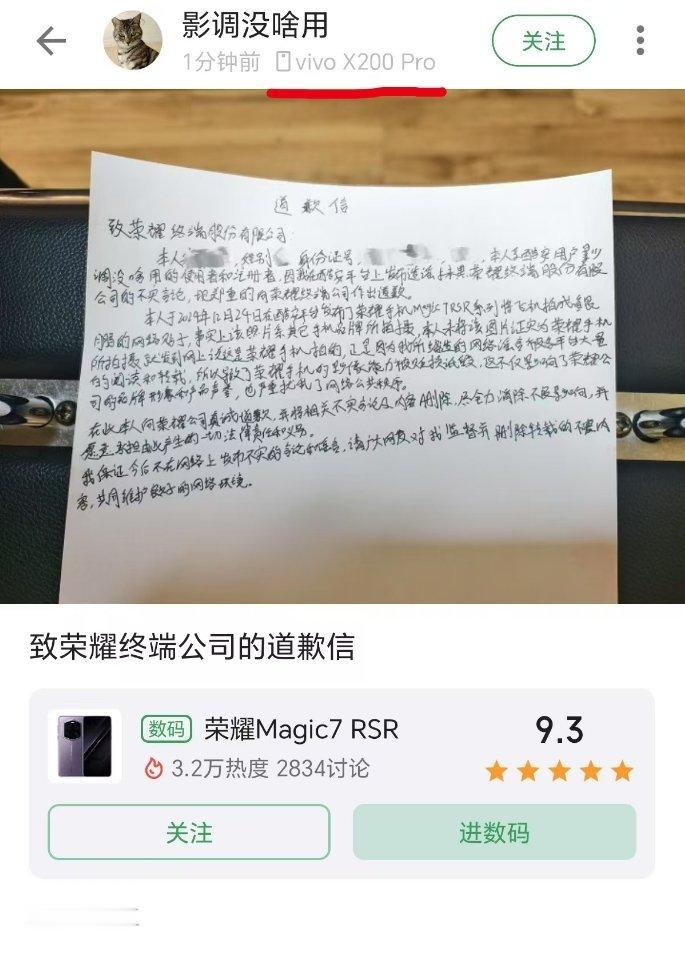 影调没啥用
1分钟前 vivo X200 Pro
关注
道歉信
致荣耀终端股份有限公司
本人 性别 身份证号, 本人是酷安用户影
调没啥用的使用者和注册者,因我在酷安平台上发布造谣荣耀终端股份有限
公司的不实言论,现郑重的向荣耀终端公司作出道歉。
本人于2024年12月24日在酷安平台发布了荣耀手机Magic7RSR系列将飞机拍成
的网络帖子,事实上该照片系其它手机品牌所拍摄,本人未将该图片证实为荣耀手机
所拍摄就发到网上说这是荣耀手机拍的,正是因为我所编造的网络谣言被各平台大量
的阅读和转载,所以导致了荣耀手机的影像能力被贬损诋毁,这不仅影响了荣耀公
司的品牌形象和产品声誉,也严重扰乱了网络公共秩序。
在此本人向荣耀公司真诚道歉,并将相关不实言论及内容删除,尽全力消除不良影响,并
愿意承担由此产生的一切法律责任和义务。
我保证今后不在网络上发布不实的言论和谣言,请广大网友对我监督并删除转载的不良内
容,共同维护良好的网络环境。
致荣耀终端公司的道歉信
数码 荣耀Magic7 RSR
9.3
3.2万热度 2834讨论
关注
进数码